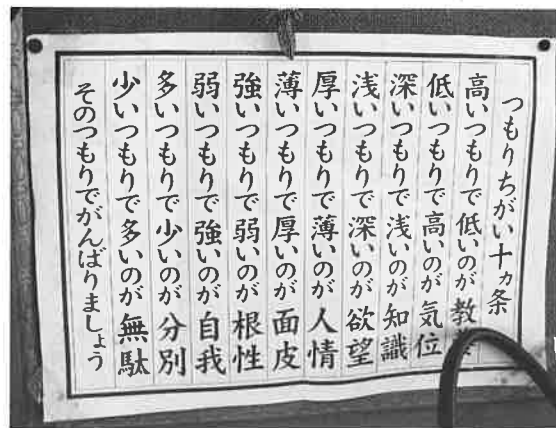 つもりちがい十ヵ条
高いつもりで低いのが教養
低いつもりで高いのが気位
深いつもりで浅いのが知識
浅いつもりで深いのが欲望
厚いつもりで薄いのが人情
薄いつもりで厚いのが面皮
強いつもりで弱いのが根性
弱いつもりで強いのが自我
多いつもりで少いのが分別
少いつもりで多いのが無駄
そのつもりでがんばりましょう